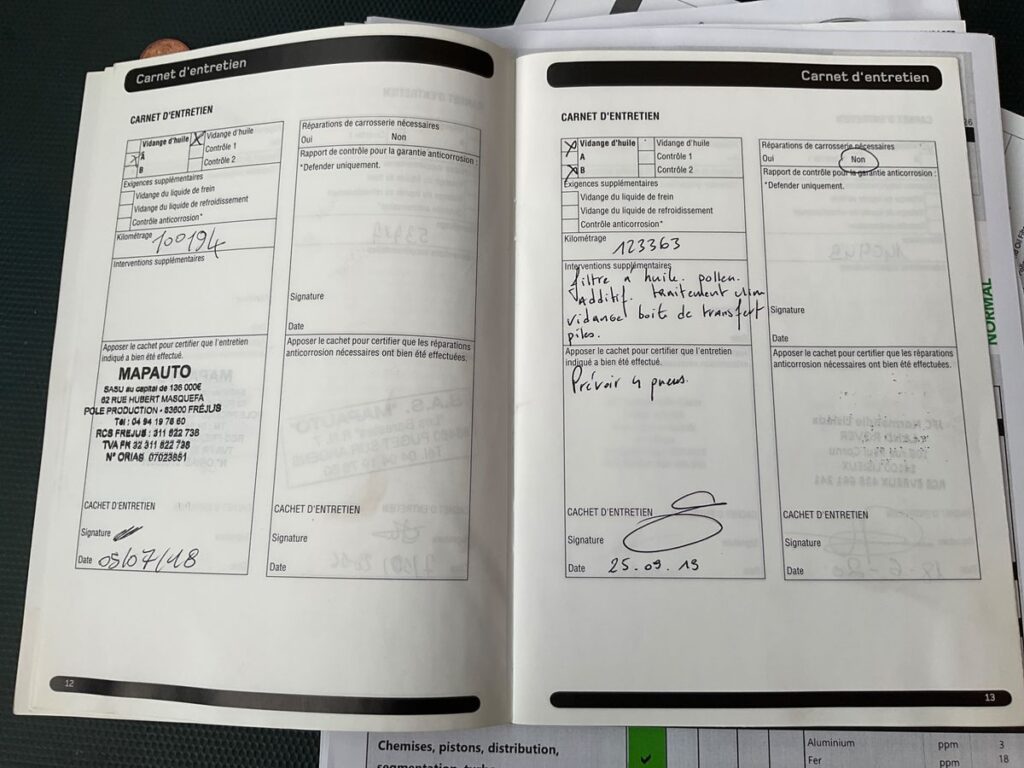 Carnet d'entretien
CARNET D'ENTRETIEN
Vidange d'huile
A
B
Vidange d'huile
Contrôle 1
Contrôle 2
Exigences supplémentaires
Vidange du liquide de frein
Vidange du liquide de refroidissement
Contrôle anticorrosion*
Kilométrage 100194
Interventions supplémentaires
Apposer le cachet pour certifier que l'entretien
indiqué a bien été effectué.
MAPAUTO
SASU au capital de 136 000€
62 RUE HUBERT MASQUEFA
POLE PRODUCTION - 83600 FRÉJUS
Tél : 04 94 19 76 60
RCS FREJUS : 311 822 738
TVA FR 32 311 822 738
N° ORIAS 07023851
CACHET D'ENTRETIEN
Signature
Date 05/07/18
Réparations de carrosserie nécessaires
Oui Non
Rapport de contrôle pour la garantie anticorrosion :
*Defender uniquement.
Signature
Date
Apposer le cachet pour certifier que les réparations
anticorrosion nécessaires ont bien été effectuées.
CACHET D'ENTRETIEN
Signature
Date
12
Carnet d'entretien
CARNET D'ENTRETIEN
Vidange d'huile
A
B
Vidange d'huile
Contrôle 1
Contrôle 2
Exigences supplémentaires
Vidange du liquide de frein
Vidange du liquide de refroidissement
Contrôle anticorrosion*
Kilométrage 123363
Interventions supplémentaires
filtre à huile. pollen.
Additif. traitement clim
vidangel boite de transfert
piles.
Apposer le cachet pour certifier que l'entretien
indiqué a bien été effectué.
Prévoir 4 pneus.
CACHET D'ENTRETIEN
Signature
Date 25.09.19
Réparations de carrosserie nécessaires
Oui Non
Rapport de contrôle pour la garantie anticorrosion :
*Defender uniquement.
Signature
Date
Apposer le cachet pour certifier que les réparations
anticorrosion nécessaires ont bien été effectuées.
CACHET D'ENTRETIEN
Signature
Date
13
NORMAL
Chemises, pistons, distribution,
Aluminium ppm 3
Fer ppm 18